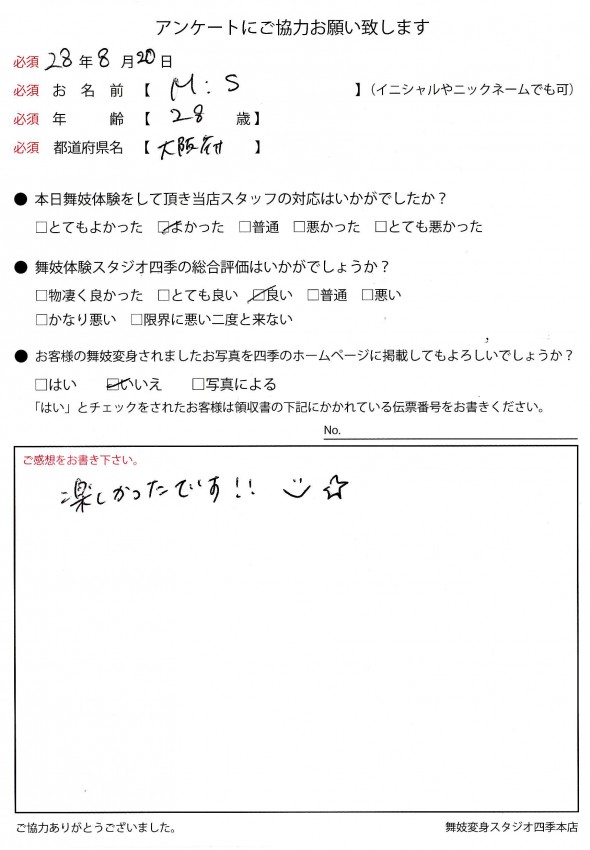 アンケートにご協力お願い致します
必須 28 年 8 月 20 日
必須 お 名 前 【 M:S 】(イニシャルやニックネームでも可)
必須 年 齢 【 28 歳】
必須 都道府県名 【 大阪府 】
● 本日舞妓体験をして頂き当店スタッフの対応はいかがでしたか?
□とてもよかった ☑よかった □普通 □悪かった □とても悪かった
● 舞妓体験スタジオ四季の総合評価はいかがでしょうか?
□物凄く良かった □とても良い ☑良い □普通 □悪い
□かなり悪い □限界に悪い二度と来ない
● お客様の舞妓変身されましたお写真を四季のホームページに掲載してもよろしいでしょうか?
□はい ☑いいえ □写真による
「はい」とチェックをされたお客様は領収書の下記にかかれている伝票番号をお書きください。
No.
ご感想をお書き下さい。
楽しかったです!!
ご協力ありがとうございました。
舞妓変身スタジオ四季本店